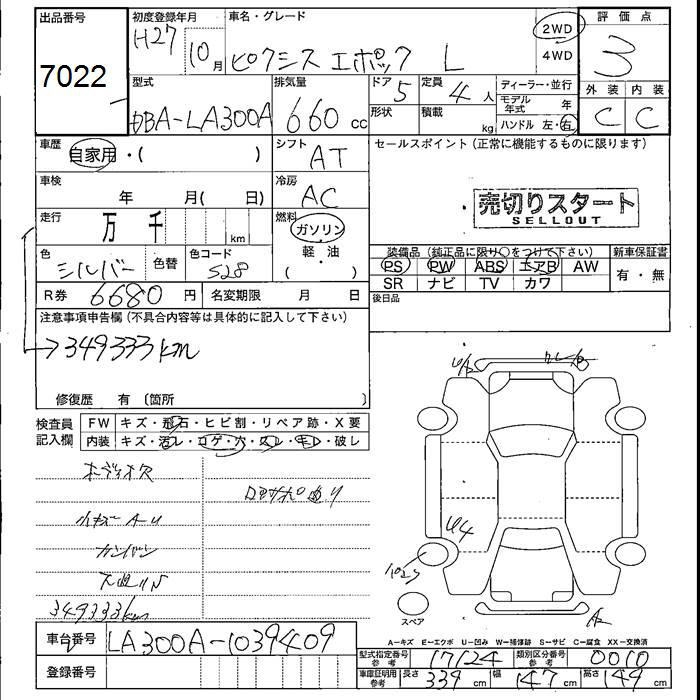 出品番号
7022
初度登録年月
H27 10月
車名・グレード
ピクシス エポック L
2WD
4WD
評価点
3
外装 内装
C C
型式
DBA-LA300A
排気量
660 cc
ドア 5
形状
定員 4人
積載 kg
ディーラー・並行
モデル年式 年
ハンドル 左・右
車歴
自家用・( )
シフト
AT
セールスポイント(正常に機能するものに限ります)
車検
年 月( 日)
冷房
AC
売切りスタート
SELLOUT
走行
万 千 km
燃料
ガソリン
軽・油
( )
色
シルバー
色替
色コード
S28
装備品(純正品に限り○をつけて下さい)
PS PW ABS エアB AW
SR ナビ TV カワ
新車保証書
有・無
後日品
R券 6680 円
名変期限 月 日
注意事項申告欄(不具合内容等は具体的に記入して下さい)
→349333km
修復歴 有 〔箇所 〕
検査員記入欄
FW キズ・飛石・ヒビ割・リペア跡・X要
内装 キズ・汚レ・コゲ・穴・スレ・キレ・破レ
オーディオ欠
小キズ A U
349333km
U4
A2
スペア
A−キズ E−エクボ U−凹み W−補修跡 S−サビ C−腐食 XX−交換済
車台番号 LA300A-1039409
登録番号
型式指定番号 参考 17124
類別区分番号 参考 0010
車庫証明用 参考 長さ 339 cm 幅 147 cm 高さ 149 cm